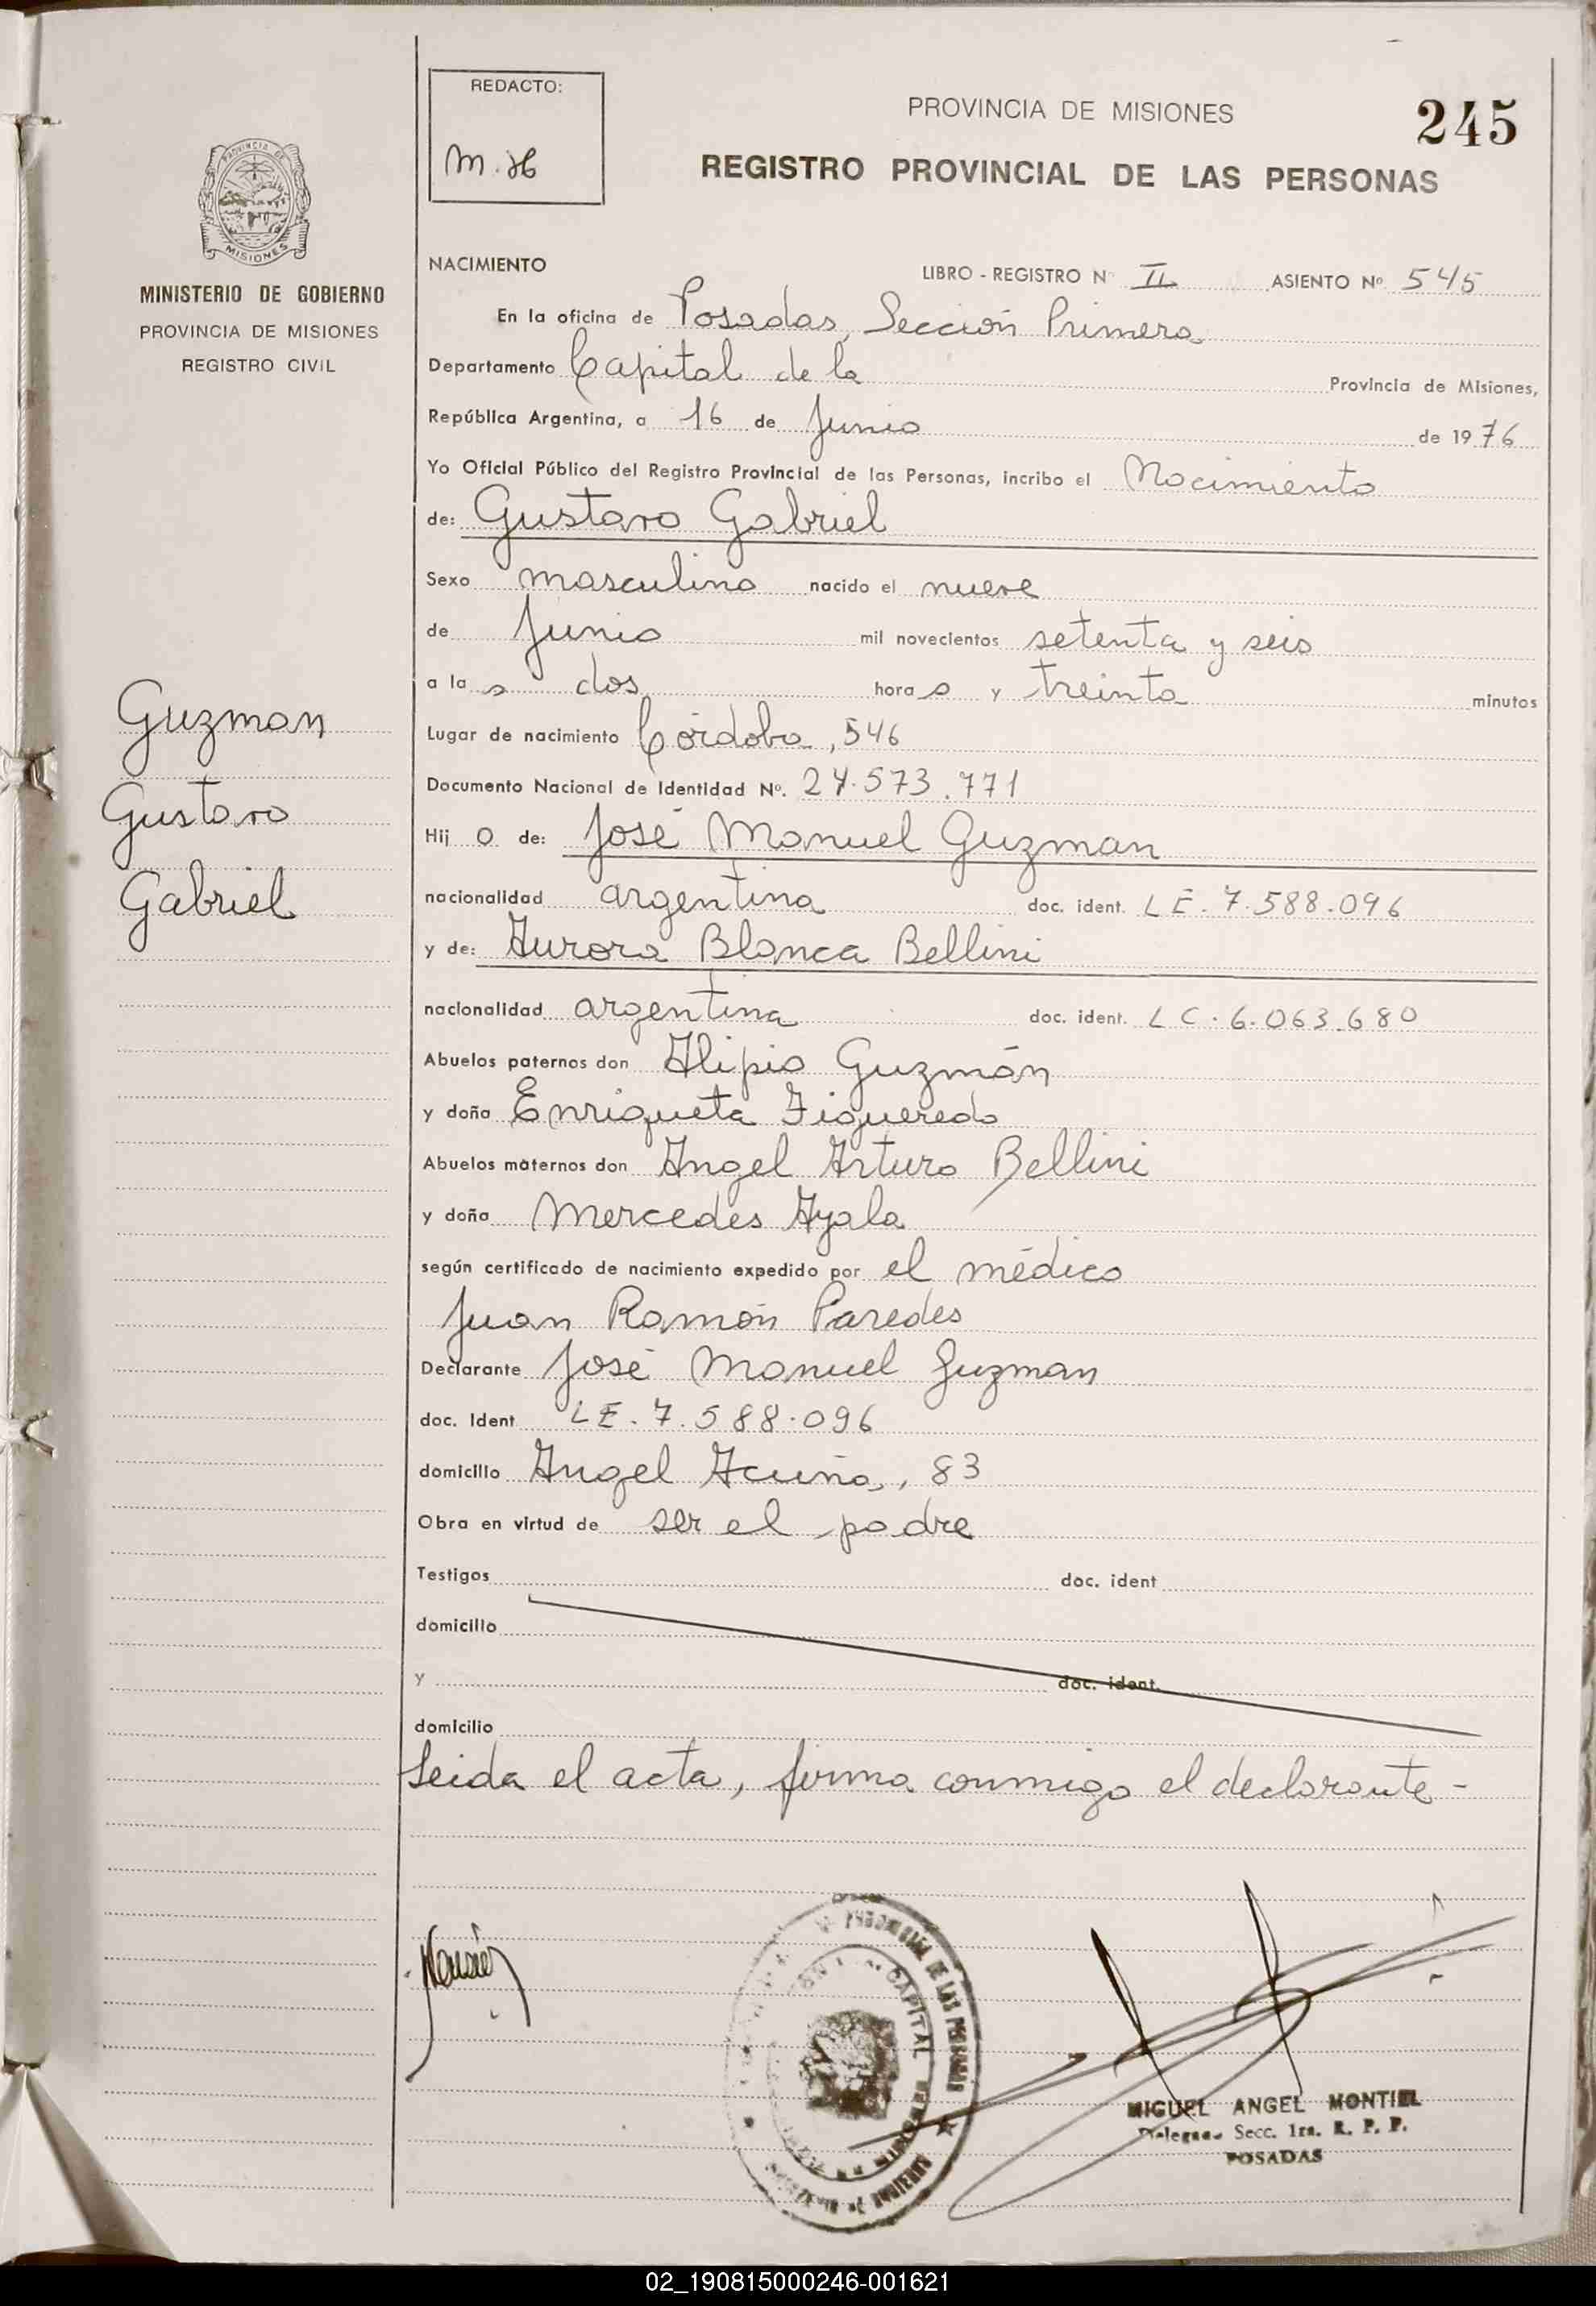 REDACTO:
M. H
PROVINCIA DE MISIONES
245
REGISTRO PROVINCIAL DE LAS PERSONAS
PROVINCIA DE
MISIONES
MINISTERIO DE GOBIERNO
PROVINCIA DE MISIONES
REGISTRO CIVIL
NACIMIENTO
LIBRO - REGISTRO Nº II ASIENTO Nº 545
En la oficina de Posadas, Sección Primera
Departamento Capital de la Provincia de Misiones,
República Argentina, a 16 de Junio de 1976
Yo Oficial Público del Registro Provincial de las Personas, incribo el Nacimiento
de: Gustavo Gabriel
Sexo masculino nacido el nueve
de Junio mil novecientos setenta y seis
a la s dos hora s y treinta minutos
Lugar de nacimiento Córdoba, 546
Documento Nacional de Identidad Nº. 24.573.771
Hij o de: José Manuel Guzman
nacionalidad argentina doc. ident. LE. 7.588.096
y de: Aurora Blanca Bellini
nacionalidad argentina doc. ident. LC. 6.063.680
Abuelos paternos don Alipio Guzmán
y doña Enriqueta Figueredo
Abuelos maternos don Angel Arturo Bellini
y doña Mercedes Ayala
según certificado de nacimiento expedido por el médico
Juan Ramón Paredes
Declarante José Manuel Guzman
doc. Ident LE. 7.588.096
domicilio Angel Acuña, 83
Obra en virtud de ser el padre
Testigos doc. ident
domicilio
y doc. ident.
domicilio
Leida el acta, firma conmigo el declarante -
Guzman
Gustavo
Gabriel
DE LAS PERSONAS
CAPITAL
MIGUEL ANGEL MONTIEL
Delegado Secc. 1ra. R. P. P.
POSADAS
02_190815000246-001621